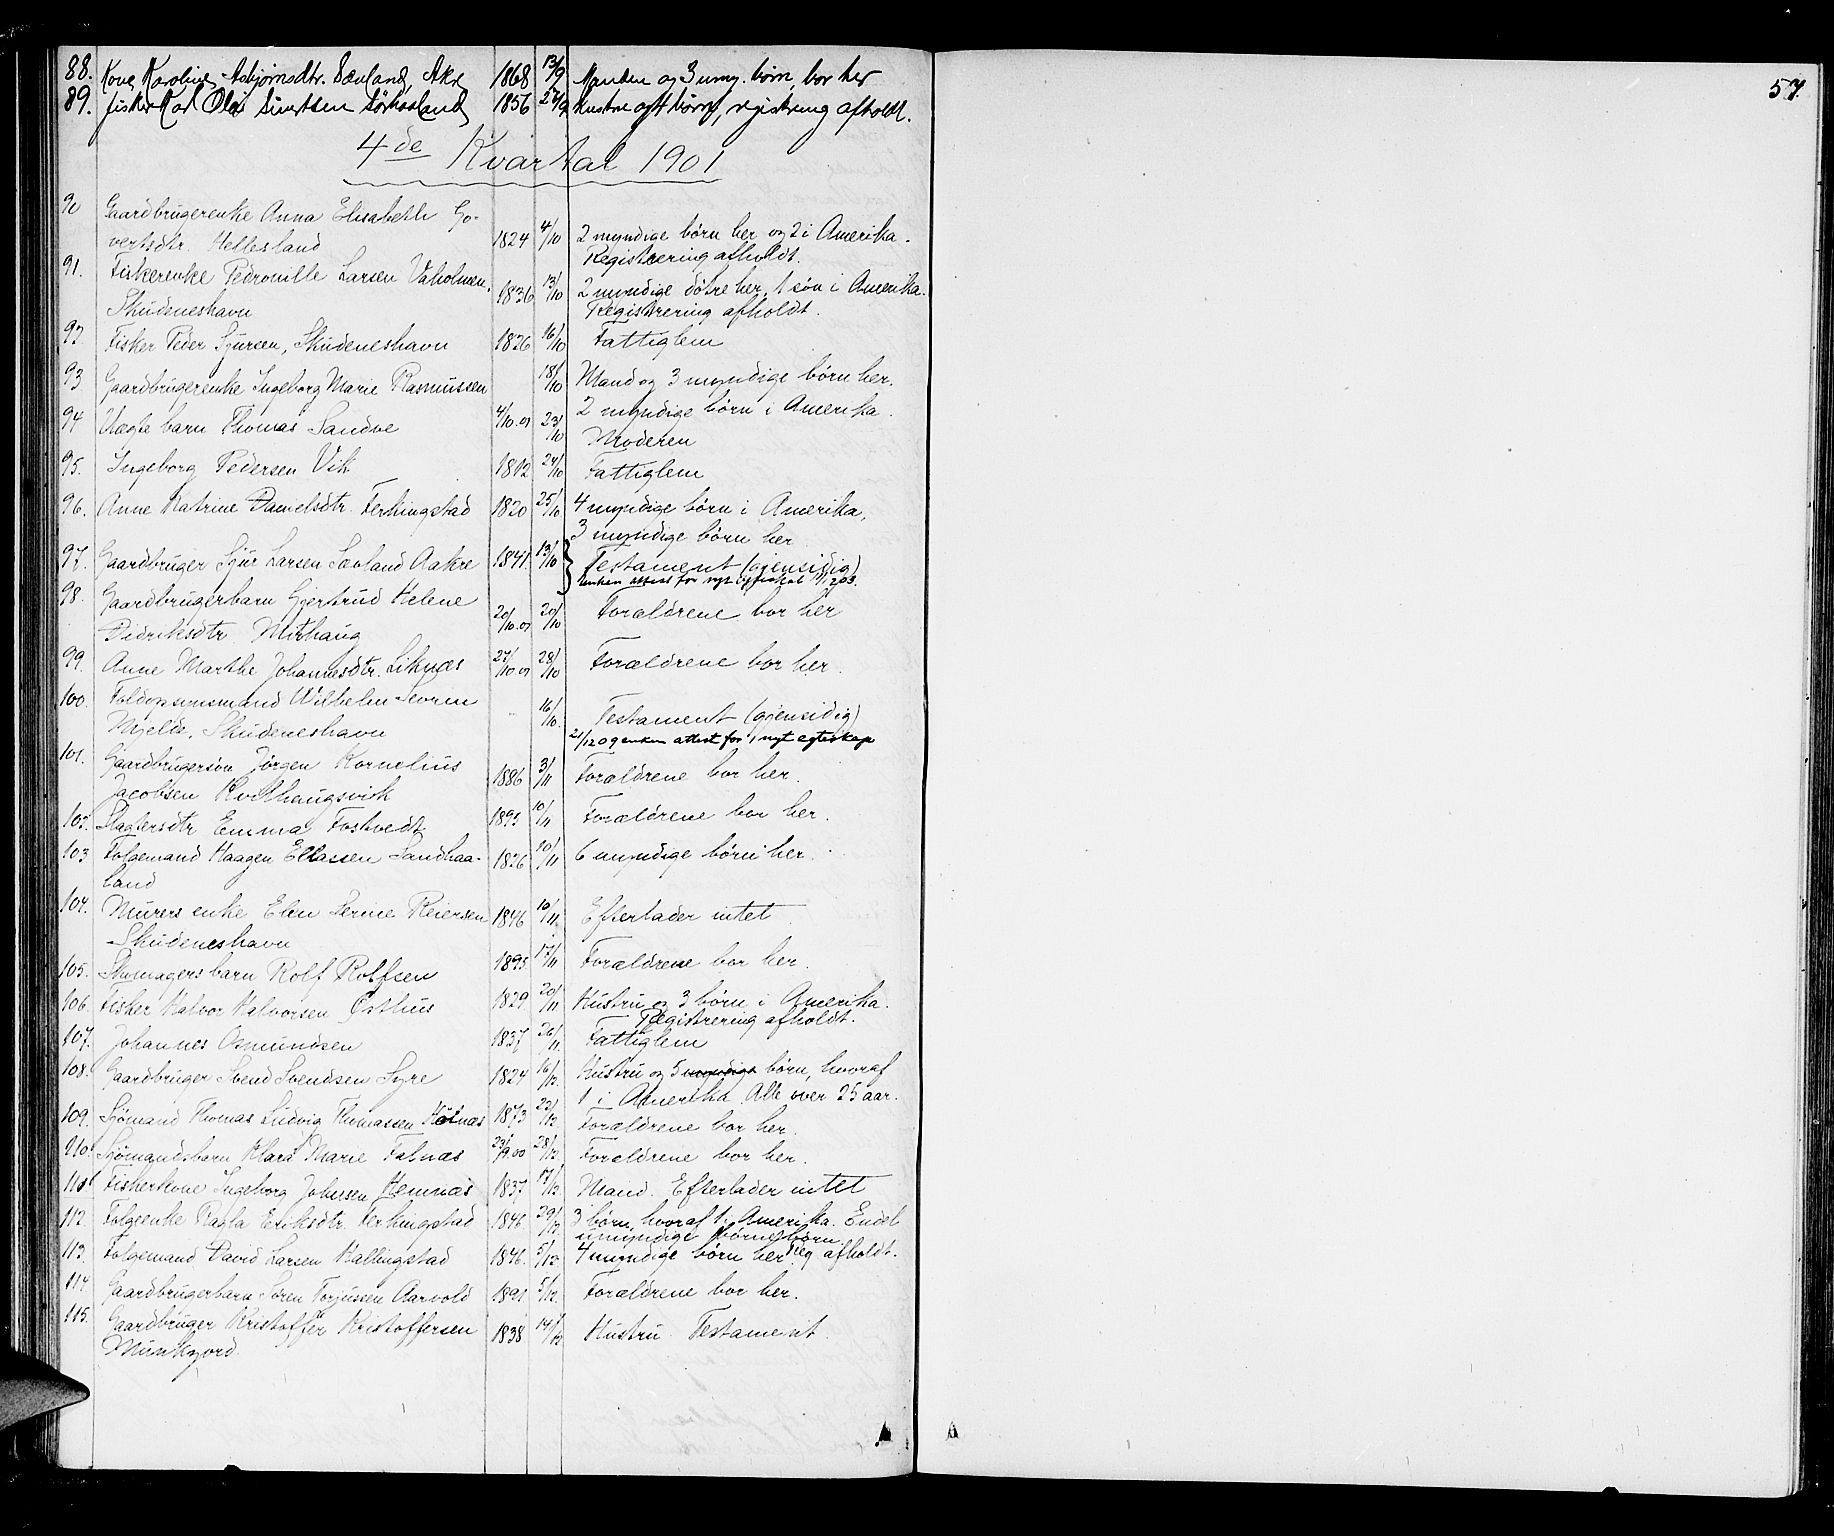 57.
88. Kone Karoline Asbjørnsdtr. Sævland, Akre 1868 13/9 Manden og 3 umy. børn, bor her
89. Fisker Karl Olai Sivertsen Sørhaaland 1856 27/9 Hustru og 4 børn, registrering afholdt.
4de Kvartal 1901
90 Gaardbrugerenke Anna Elisabeth Go-
vertsdtr. Hellesland 1824 4/10 2 myndige børn her og 2 i Amerika.
Registrering afholdt.
91. Fiskerenke Pedronille Larsen Vaholmen, 1836 13/10 2 myndige døtre her, 1 søn i Amerika.
Skudeneshavn Registrering afholdt.
92. Fisker Peder Sjursen, Skudeneshavn 1826 16/10 Fattiglem
93 Gaardbrugerenke Ingeborg Marie Rasmussen 18/10 Mand og 3 myndige børn her.
2 myndige børn i Amerika.
94 Uægte barn Thomas Sandve 4/10.01 23/10 Moderen
95. Ingeborg Pedersen Vik 1812 24/10 Fattiglem
96. Anne Katrine Danielsdtr. Ferkingstad 1820 25/10 4 myndige børn i Amerika,
3 myndige børn her
97. Gaardbruger Sjur Larsen Sævland Aakre 1841. 13/10 Testament (gjensidig)
enken attest for nyt egteskab
98. Gaardbrugerbarn Gjertrud Helene
Didriksdtr Midhaug 20/10.01 20/10 Forældrene bor her
99. Anne Marthe Johannesdtr. Liknæs 27/10.01 28/10 Forældrene bor her.
100. Toldopsynsmand Wilhelm Severin
Mjelde, Skudeneshavn 16/10. Testament (gjensidig)
21/12 09 enken attest for nyt egteskap
101. Gaardbrugersøn Jørgen Kornelius
Jacobsen Kvilhaugsvik 1886 3/11 Forældrene bor her.
102. Slagtersdtr Emma Fostvedt 1895 10/11 Forældrene bor her.
103 Følgemand Haagen Eliassen Sandhaa-
land 1826 10/11 6 myndige børn her.
104. Murers enke Elen Serine Reiersen
Skudeneshavn 1846 10/11. Efterlader intet
105. Skomagersbarn Rolf Rolfsen 1895. 17/11 Forældrene bor her.
106. Fisker Halvor Halvorsen Østhus 1829 20/11 Hustru og 3 børn i Amerika.
Registrering afholdt.
107. Johannes Osmundsen 1837 26/11. Fattiglem
108. Gaardbruger Svend Svendsen Syre 1824 16/12. Hustru og 5 myndige børn, hvoraf
1 i Amerika. Alle over 25 aar.
109. Sjømand Thomas Ludvig Thomassen Holnæs 1873 22/12 Forældrene bor her.
110. Sjømandsbarn Klara Marie Falnæs 23/9.00 28/12. Forældrene bor her.
111 Fiskerkone Ingeborg Johnsen Hemnæs 1837 17/12 Mand. Efterlader intet
112. Følgeenke Ragla Eriksdtr. Ferkingstad 1846 29/12. 3 børn, hvoraf 1 i Amerika. Endel
umyndige børnebørn.
113. Følgemand David Larsen Hallingstad 1846. 5/12. 4 myndige børn her. Reg afholdt.
114. Gaardbrugerbarn Søren Torjussen Aarvold 1891 5/12. Forældrene bor her.
115. Gaardbruger Kristoffer Kristoffersen
Munkejord. 1838 14/12 Hustru. Testament.